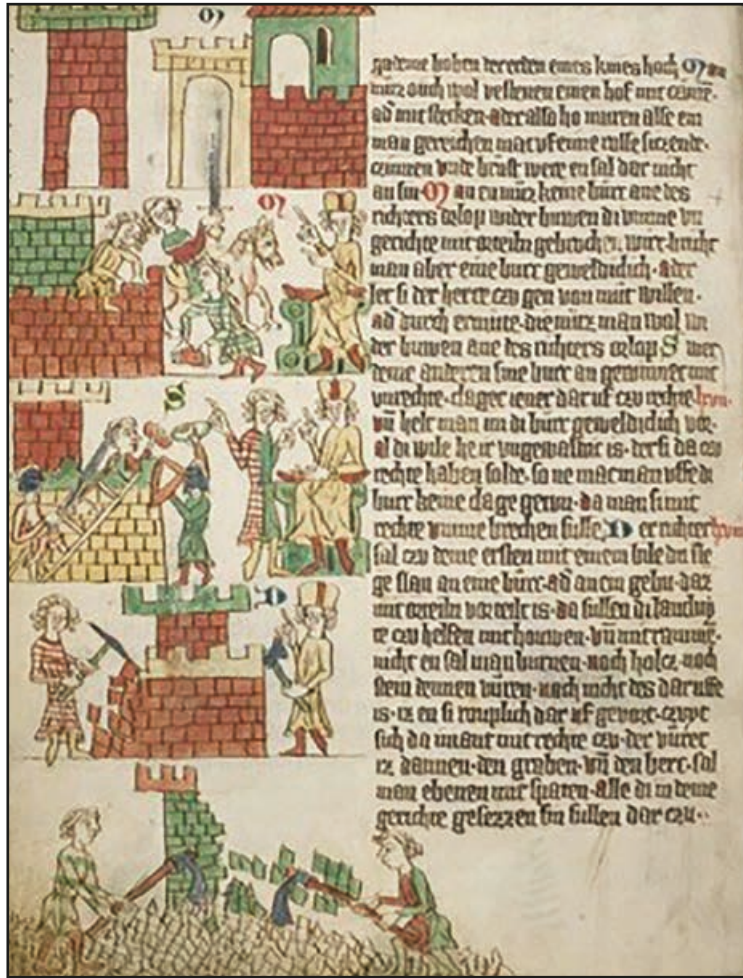 M
gademe boben der erden eines knies hoch M an
muz ouch wol vestenen einen hof mit czune.
ad' mit stecken. ader also ho muren alse ein
man gereichen mac uf eime rosse siczende.
czinnen unde brust were en sal dar nicht
an sin. M an en muz keine burc ane des
M
richters orlop wider buwen di umme un
gerichte mit orteiln gebrochen wirt. bricht
man aber eine burc geweldiclich. ader
lez si der herre czu gen von mut willen.
ad' durch ermute. die muz man wol wi
der buwen ane des richters orlop S wer
S
deme anderen sine burc an gewinnet mit
unrechte. claget iener dar uf czu rechte lxvii.
uñ helt man im di burc geweldiclich vor.
al di wile he ir ungewaldic is. der si da czu
rechte haben solde. so ne mac man uffe di
burc keine clage getun. da man si mit
rechte umme brechen sulle. D er richter lxviii
D
sal czu deme ersten mit eineme bile dri sle
ge slan an eine burc. ad' an ein gebu. daz
mit orteiln vorteilt is. da sullen di lantluy
te czu helfen mit houwen. uñ mit ramme.
nicht en sal man burnen. noch holcz noch
stein dennen vuren. noch nicht des dar uffe
is. iz en si rouplich dar uf gevort. czuyt
sich da imant mit rechte czu. der vuret
iz dannen. den graben. uñ den berc. sal
man ebenen mit spaten. alle di in deme
gerichte gesezzen sin sullen dar czu..